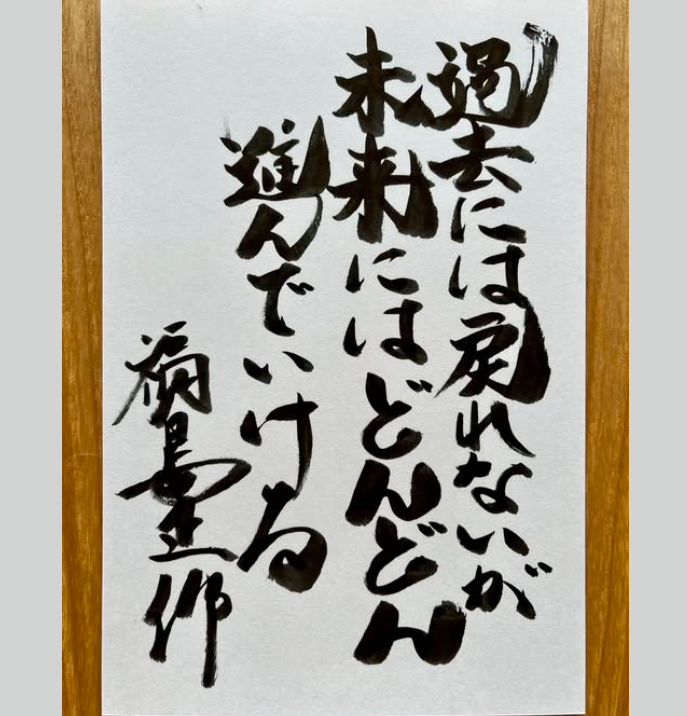 過去には戻れないが
未来にはどんどん
進んでいける
福島正伸